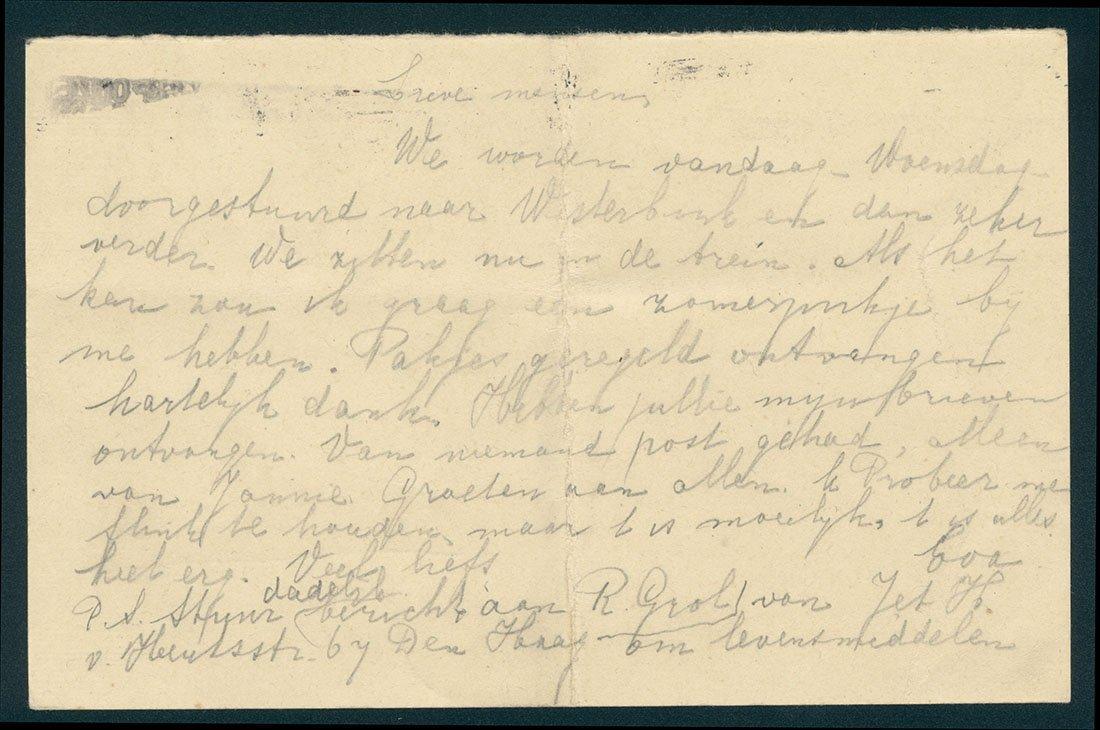 Lieve mensen,
We worden vandaag - Woensdag -
doorgestuurd naar Westerbork en dan zeker
verder. We zitten nu in de trein. Als het
kan zou ik graag een zomerjurkje bij
me hebben. Pakjes geregeld ontvangen
hartelijk dank. Hebben jullie mijn brieven
ontvangen. Van niemand post gehad, alleen
van Jannie. Groeten aan allen. Ik Probeer me
flink te houden, maar t is moeilijk, t is alles
heel erg. Veel liefs Eva
dadelijk
P.S. Stuur bericht aan R. Grol van Jet H.
v. Heutsstr. 67 Den Haag om levensmiddelen